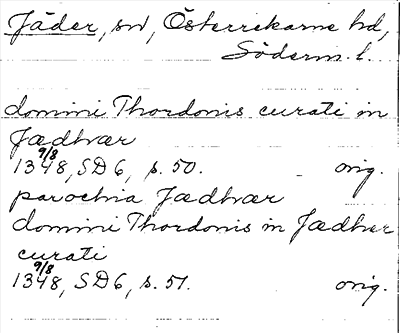 Jäder, sn, Österrekarne hd,
Söderm. l.
domini Thordonis curati in
Jædhrær
9/8
1348, SD6, s. 50. orig.
parochia Jædhrær
domini Thordonis in Jædhrer
curati
9/8
1348, SD6, s. 51. orig.